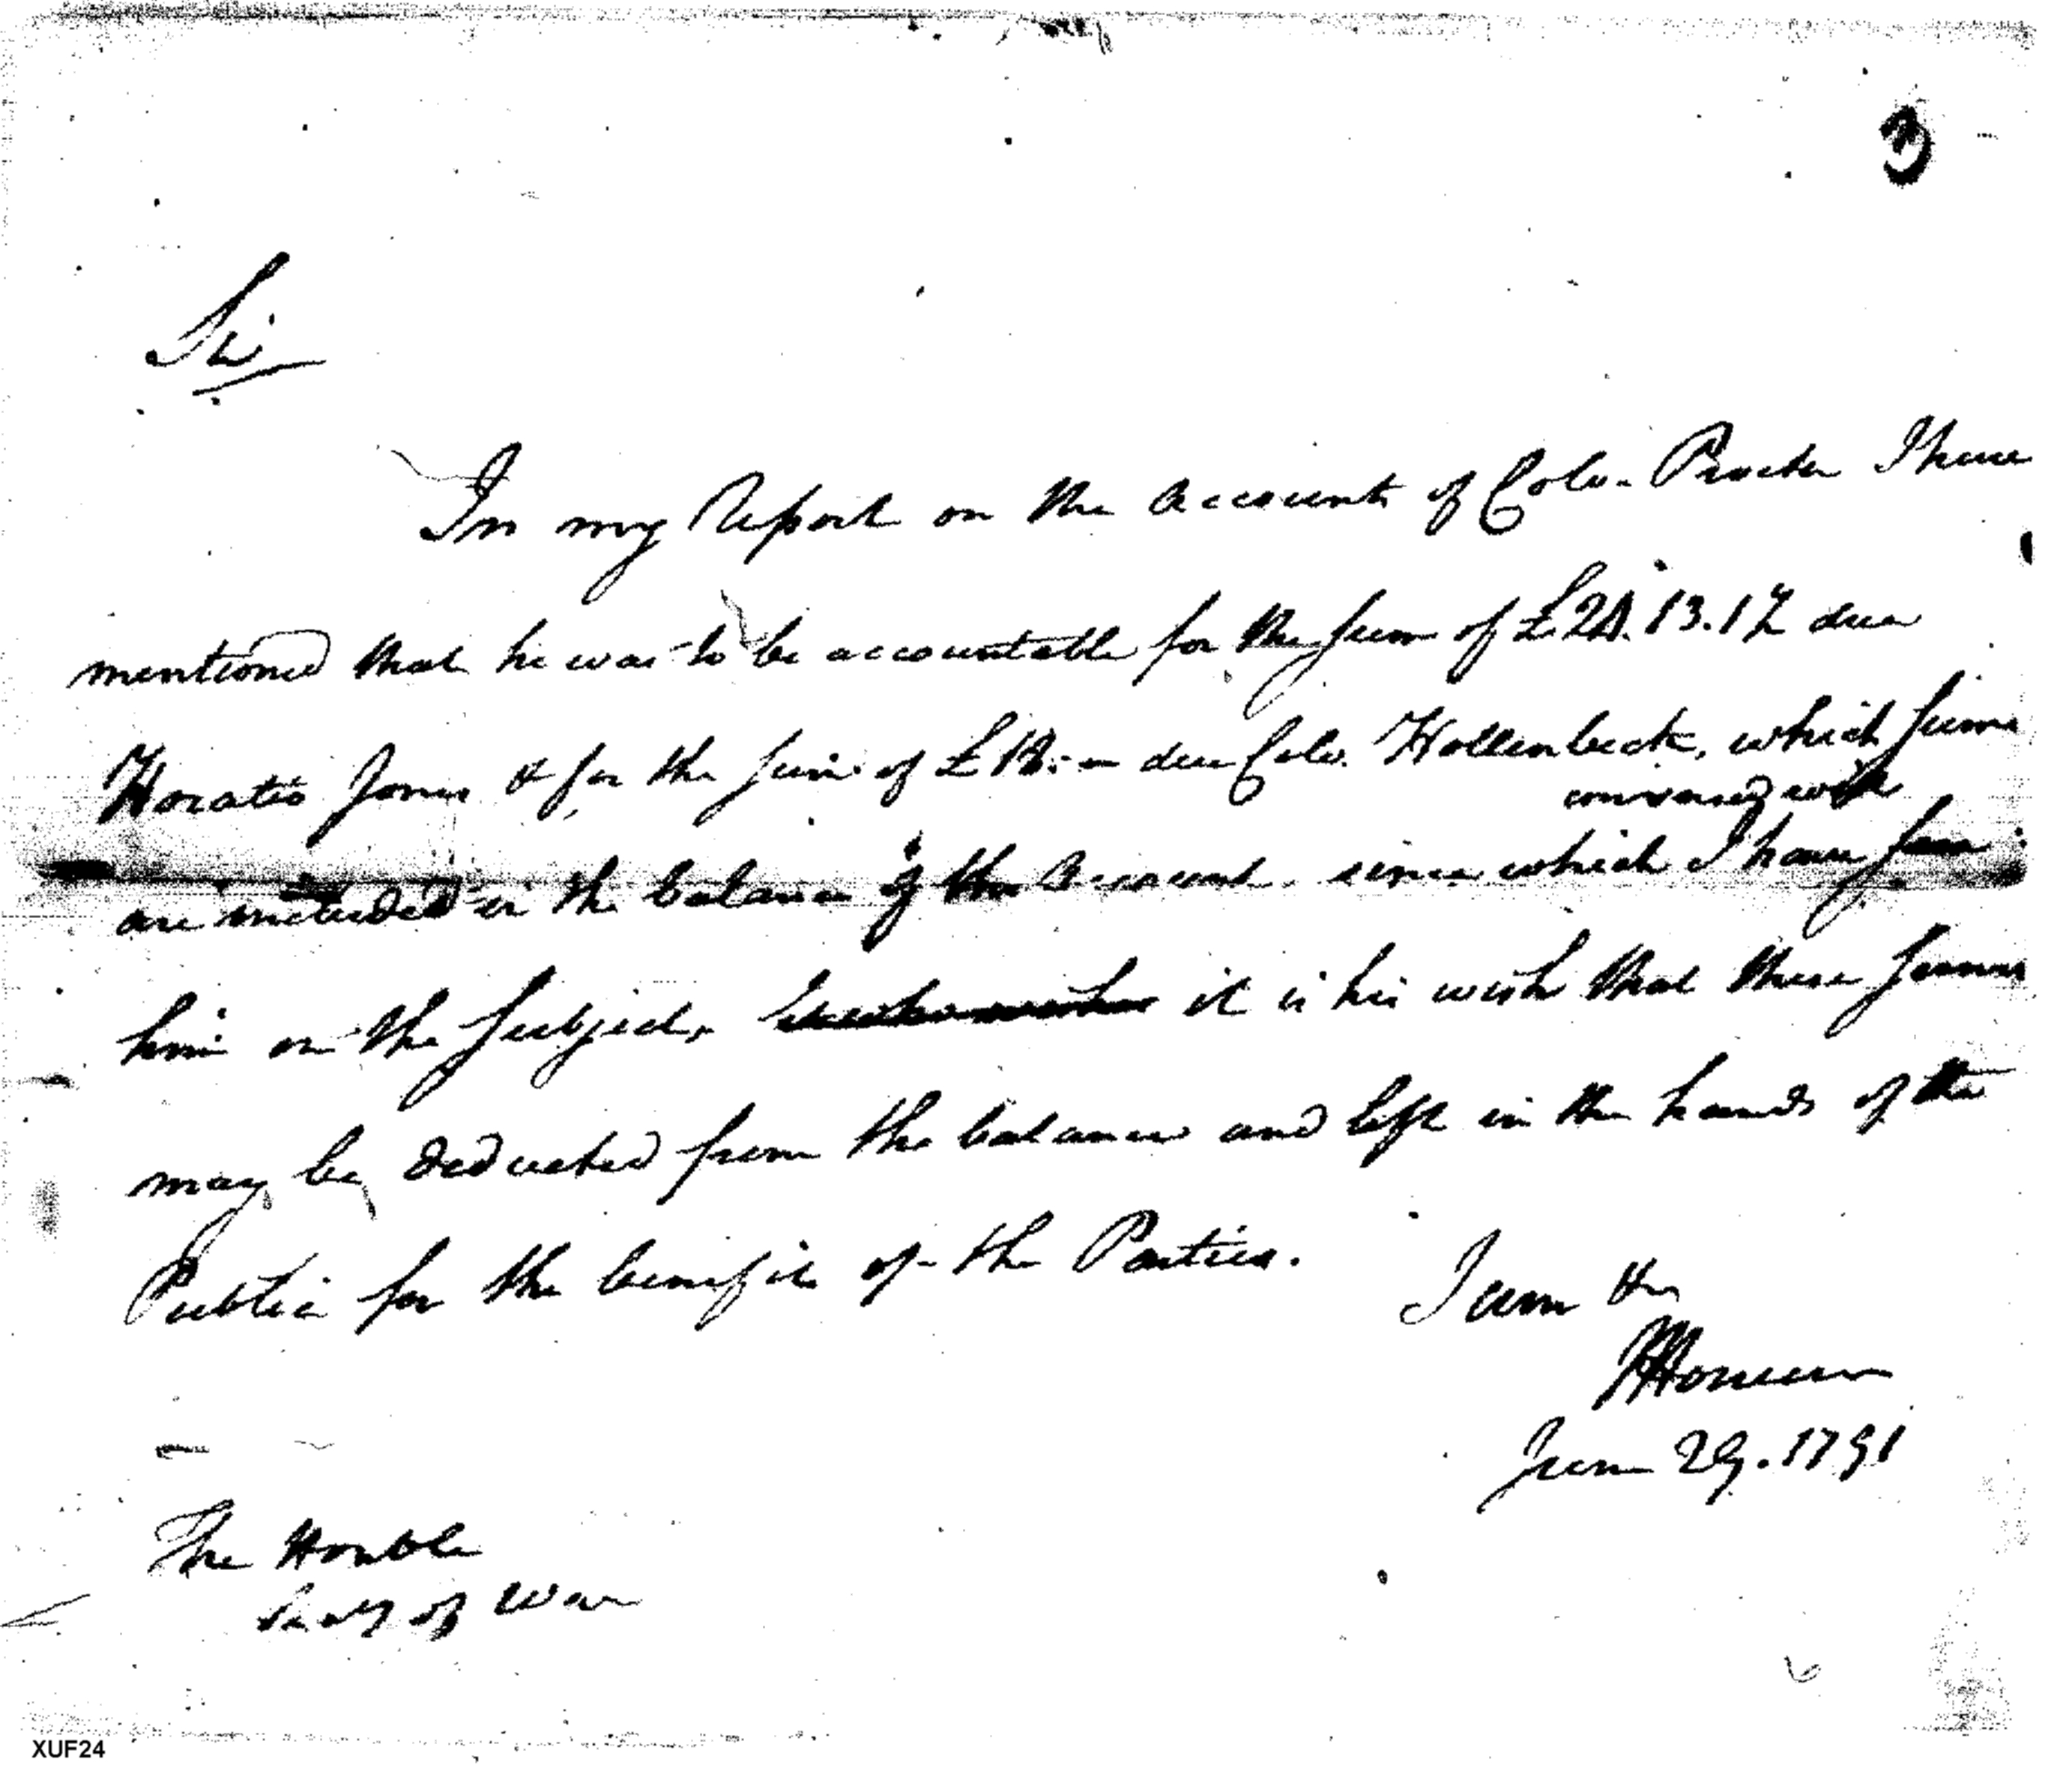 3
Sir
In my Report on the Accounts of Colo. Procter I have
mentioned that he was to be accountable for the sum of due
Horatio Jones & for the sum of due Colo. Hollenbeck, which sums
conversed with
are included in the balance of the Account. since which I have
him on the subject, it is his wish that these sums
may be deducted from the balance and left in the hands of the
Public for the benefit of the Parties.
I am &c
June 29. 1791
The Honble
Secy of War
XUF24